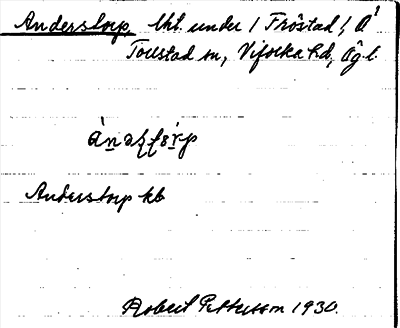 Anderstorp, lht. under 1 Fröstad, Å¹
Tolstad sn, Vifolka hd, Ög. l.
Anderstorp kb
Robert Pettersson 1930.